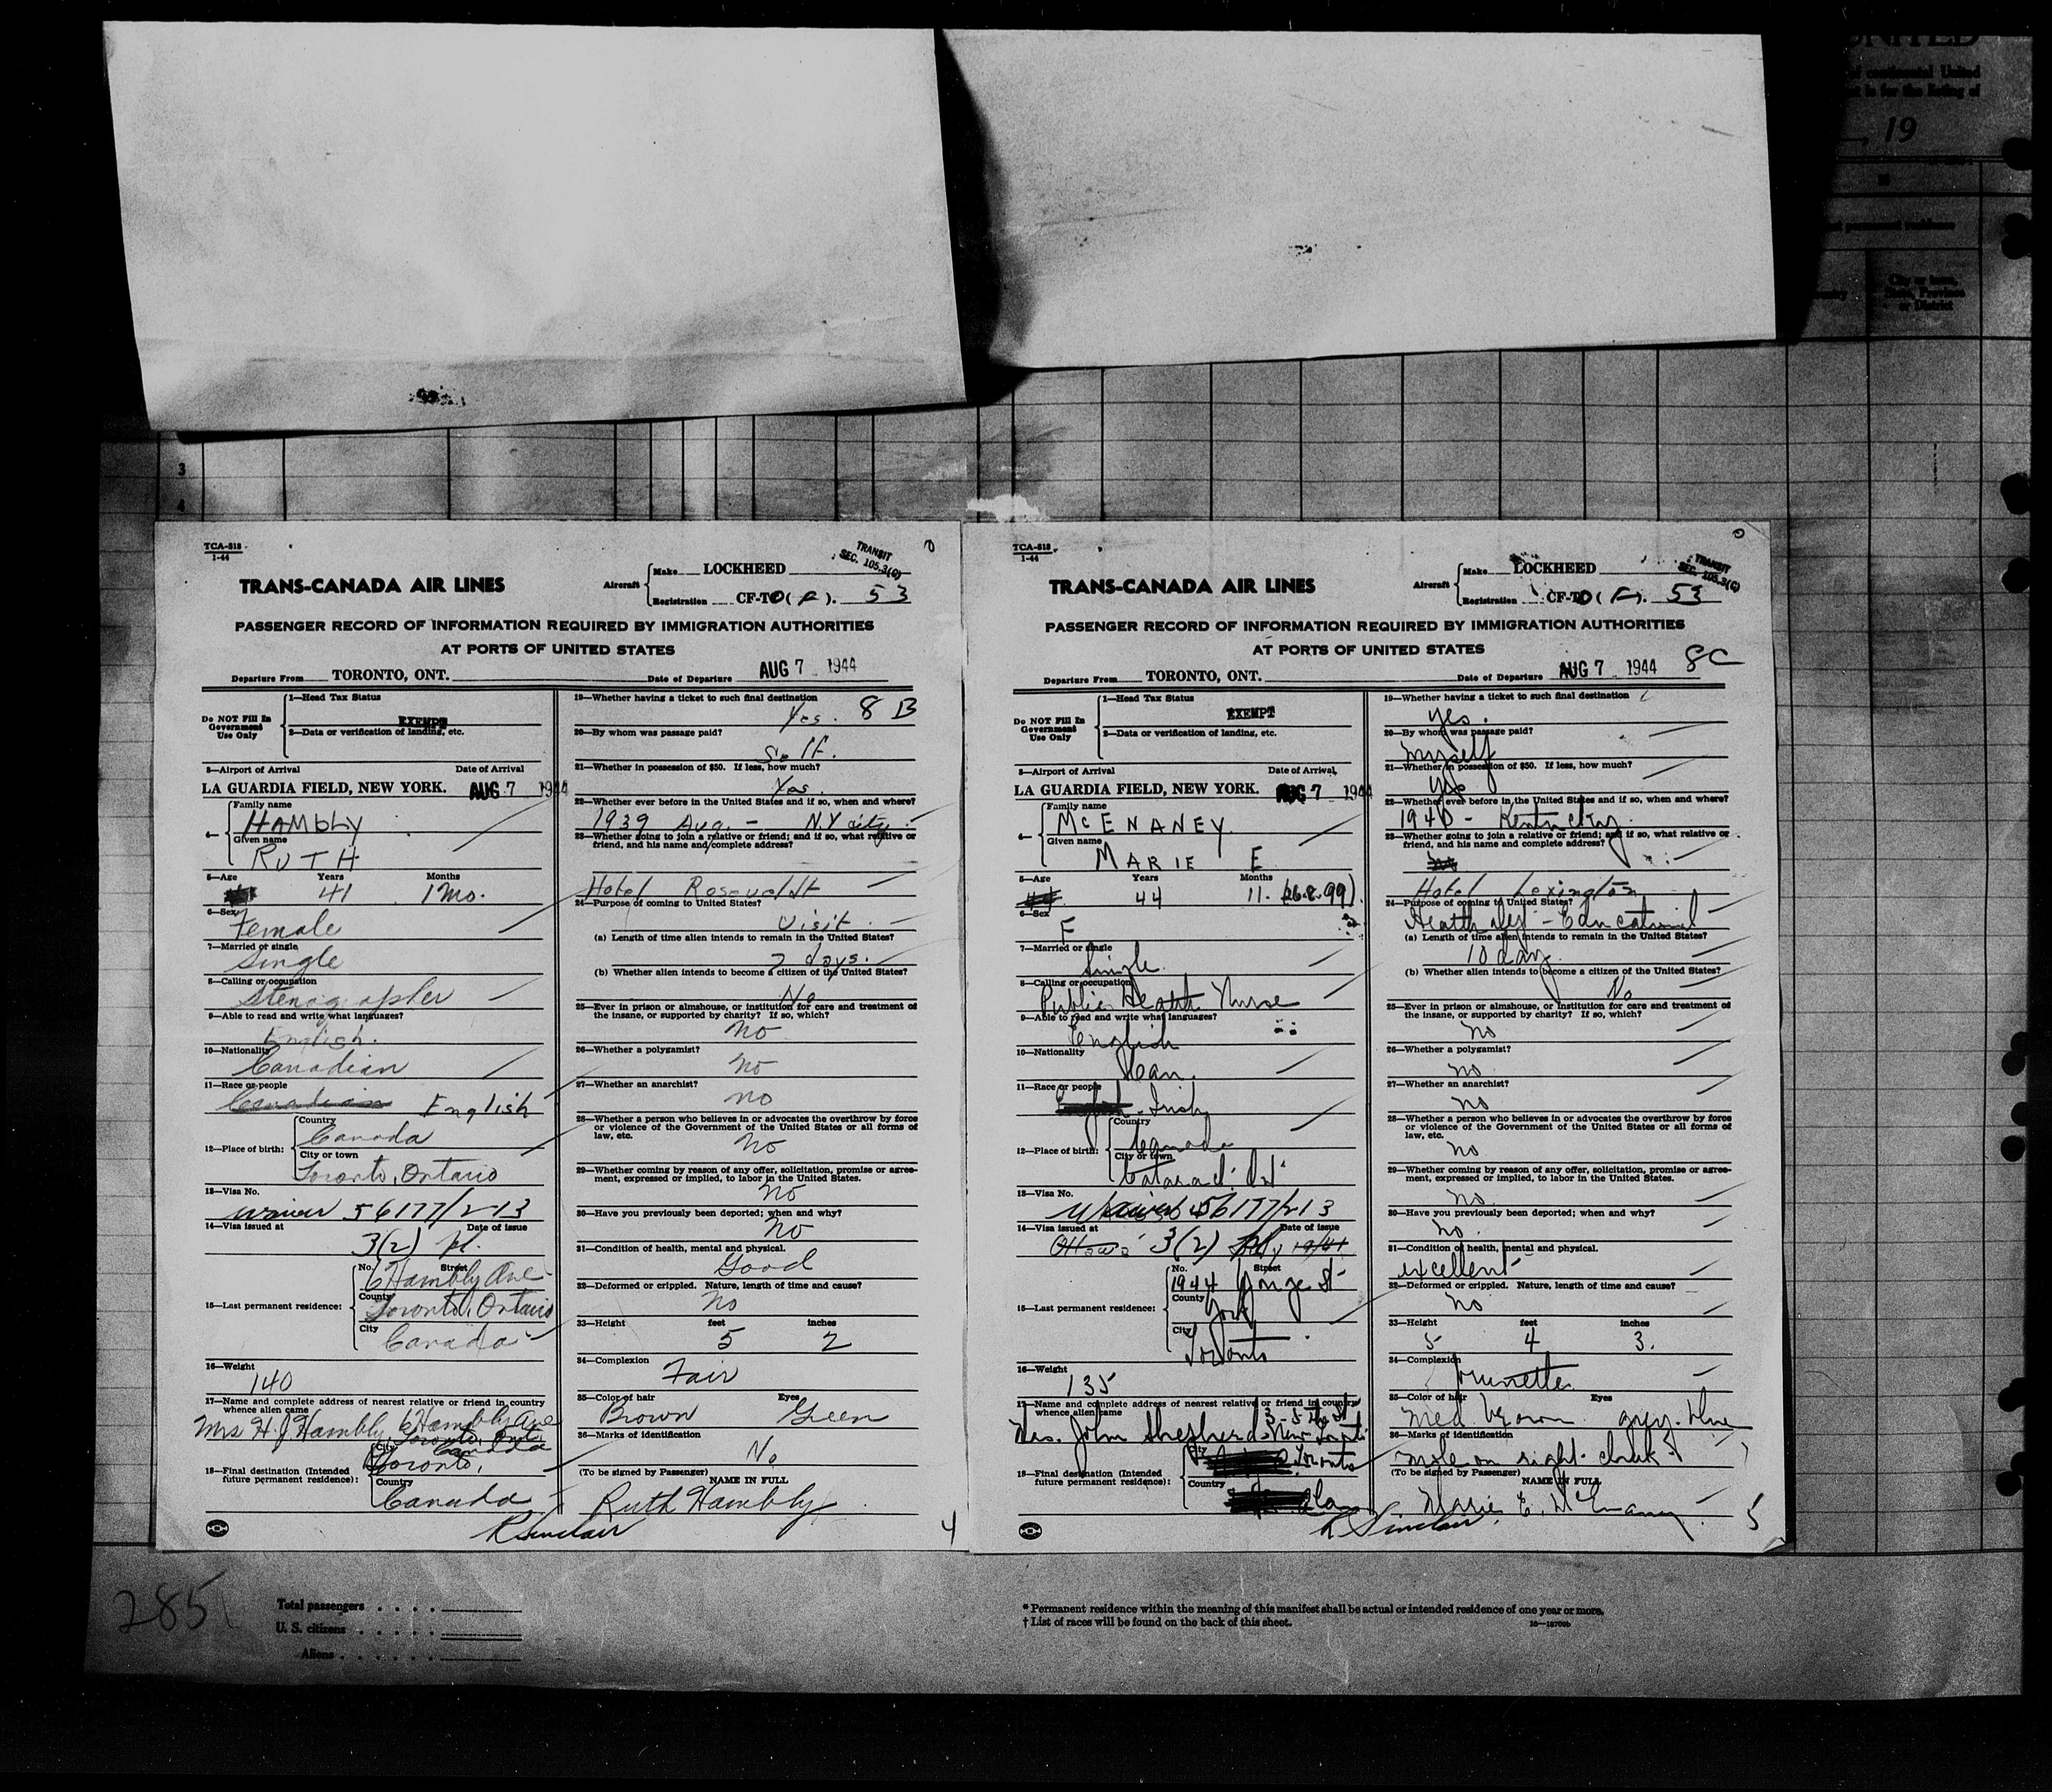 UNITED
of continental United
is for the listing of
, 19
City or town,
or District
3
4
TCA-518
1-44
TRANSIT
SEC. 105.3(C)
TRANS-CANADA AIR LINES
Aircraft
Make LOCKHEED
Registration CF-TO(F). 53
PASSENGER RECORD OF INFORMATION REQUIRED BY IMMIGRATION AUTHORITIES
AT PORTS OF UNITED STATES
Departure From TORONTO, ONT. Date of Departure AUG 7 1944
Do NOT Fill In Government Use Only
1—Head Tax Status
EXEMPT
2—Data or verification of landing, etc.
3—Airport of Arrival Date of Arrival
LA GUARDIA FIELD, NEW YORK. AUG 7 1944
4—
Family name
HAMBLY
Given name
RUTH
5—Age Years Months
41 1 Mo.
6—Sex
Female
7—Married or single
Single
8—Calling or occupation
Stenographer
9—Able to read and write what languages?
English.
10—Nationality
Canadian
11—Race or people
Canadian English
12—Place of birth:
Country
Canada
City or town
Toronto, Ontario
13—Visa No.
waiver 56177/213
14—Visa issued at Date of issue
3(2)
15—Last permanent residence:
No. Street
6 Hambly Ave
County
Toronto, Ontario
City
Canada
16—Weight
140
17—Name and complete address of nearest relative or friend in country
whence alien came
Mrs H. J. Hambly, 6 Hambly Ave
Toronto, Ont.
Canada
18—Final destination (Intended
future permanent residence):
City
Toronto,
Country
Canada
19—Whether having a ticket to such final destination
Yes. 8 B
20—By whom was passage paid?
Self.
21—Whether in possession of $50. If less, how much?
Yes.
22—Whether ever before in the United States and if so, when and where?
1939 Aug. - N.Y city.
23—Whether going to join a relative or friend; and if so, what relative or
friend, and his name and complete address?
Hotel Roseveldt
24—Purpose of coming to United States?
Visit
(a) Length of time alien intends to remain in the United States?
7 days.
(b) Whether alien intends to become a citizen of the United States?
No
25—Ever in prison or almshouse, or institution for care and treatment of
the insane, or supported by charity? If so, which?
no
26—Whether a polygamist?
no
27—Whether an anarchist?
no
28—Whether a person who believes in or advocates the overthrow by force
or violence of the Government of the United States or all forms of
law, etc.
no
29—Whether coming by reason of any offer, solicitation, promise or agree-
ment, expressed or implied, to labor in the United States.
no
30—Have you previously been deported; when and why?
no
31—Condition of health, mental and physical.
Good
32—Deformed or crippled. Nature, length of time and cause?
No
33—Height feet inches
5 2
34—Complexion
Fair
35—Color of hair Eyes
Brown Green
36—Marks of identification
No
(To be signed by Passenger) NAME IN FULL
Ruth Hambly
R Sinclair
4
TCA-518
1-44
TRANSIT
SEC. 105.3(C)
TRANS-CANADA AIR LINES
Aircraft
Make LOCKHEED
Registration CF-TO(F). 53
PASSENGER RECORD OF INFORMATION REQUIRED BY IMMIGRATION AUTHORITIES
AT PORTS OF UNITED STATES
8C
Departure From TORONTO, ONT. Date of Departure AUG 7 1944
Do NOT Fill In Government Use Only
1—Head Tax Status
EXEMPT
2—Data or verification of landing, etc.
3—Airport of Arrival Date of Arrival
LA GUARDIA FIELD, NEW YORK. AUG 7 1944
4—
Family name
McENANEY
Given name
MARIE E
5—Age Years Months
44 11. (6.8.99)
6—Sex
F
7—Married or single
Single
8—Calling or occupation
Public Health Nurse
9—Able to read and write what languages?
English
10—Nationality
Can.
11—Race or people
English - Irish
12—Place of birth:
Country
Canada
City or town
Cataract. Ont
13—Visa No.
Waiver 56177/213
14—Visa issued at Date of issue
Ottawa 3(2) 19/41
15—Last permanent residence:
No. Street
1944 Yonge St
County
York
City
Toronto
16—Weight
135
17—Name and complete address of nearest relative or friend in country
whence alien came
Mrs. John Shepherd - 3 - 5th St
New Toronto
18—Final destination (Intended
future permanent residence):
City
Toronto
Country
19—Whether having a ticket to such final destination
yes.
20—By whom was passage paid?
myself
21—Whether in possession of $50. If less, how much?
yes
22—Whether ever before in the United States and if so, when and where?
1940 - Kentucky.
23—Whether going to join a relative or friend; and if so, what relative or
friend, and his name and complete address?
Hotel Lexington
24—Purpose of coming to United States?
Health - Educational
(a) Length of time alien intends to remain in the United States?
10 days.
(b) Whether alien intends to become a citizen of the United States?
No
25—Ever in prison or almshouse, or institution for care and treatment of
the insane, or supported by charity? If so, which?
no
26—Whether a polygamist?
no
27—Whether an anarchist?
no
28—Whether a person who believes in or advocates the overthrow by force
or violence of the Government of the United States or all forms of
law, etc.
no
29—Whether coming by reason of any offer, solicitation, promise or agree-
ment, expressed or implied, to labor in the United States.
no
30—Have you previously been deported; when and why?
no.
31—Condition of health, mental and physical.
excellent
32—Deformed or crippled. Nature, length of time and cause?
no
33—Height feet inches
5 4 3.
34—Complexion
brunette
35—Color of hair Eyes
med brown grey-blue
36—Marks of identification
mole on right cheek
(To be signed by Passenger) NAME IN FULL
Marie E. McEnaney
R Sinclair
5
285
Total passengers
U. S. citizens
Aliens
* Permanent residence within the meaning of this manifest shall be actual or intended residence of one year or more.
† List of races will be found on the back of this sheet.